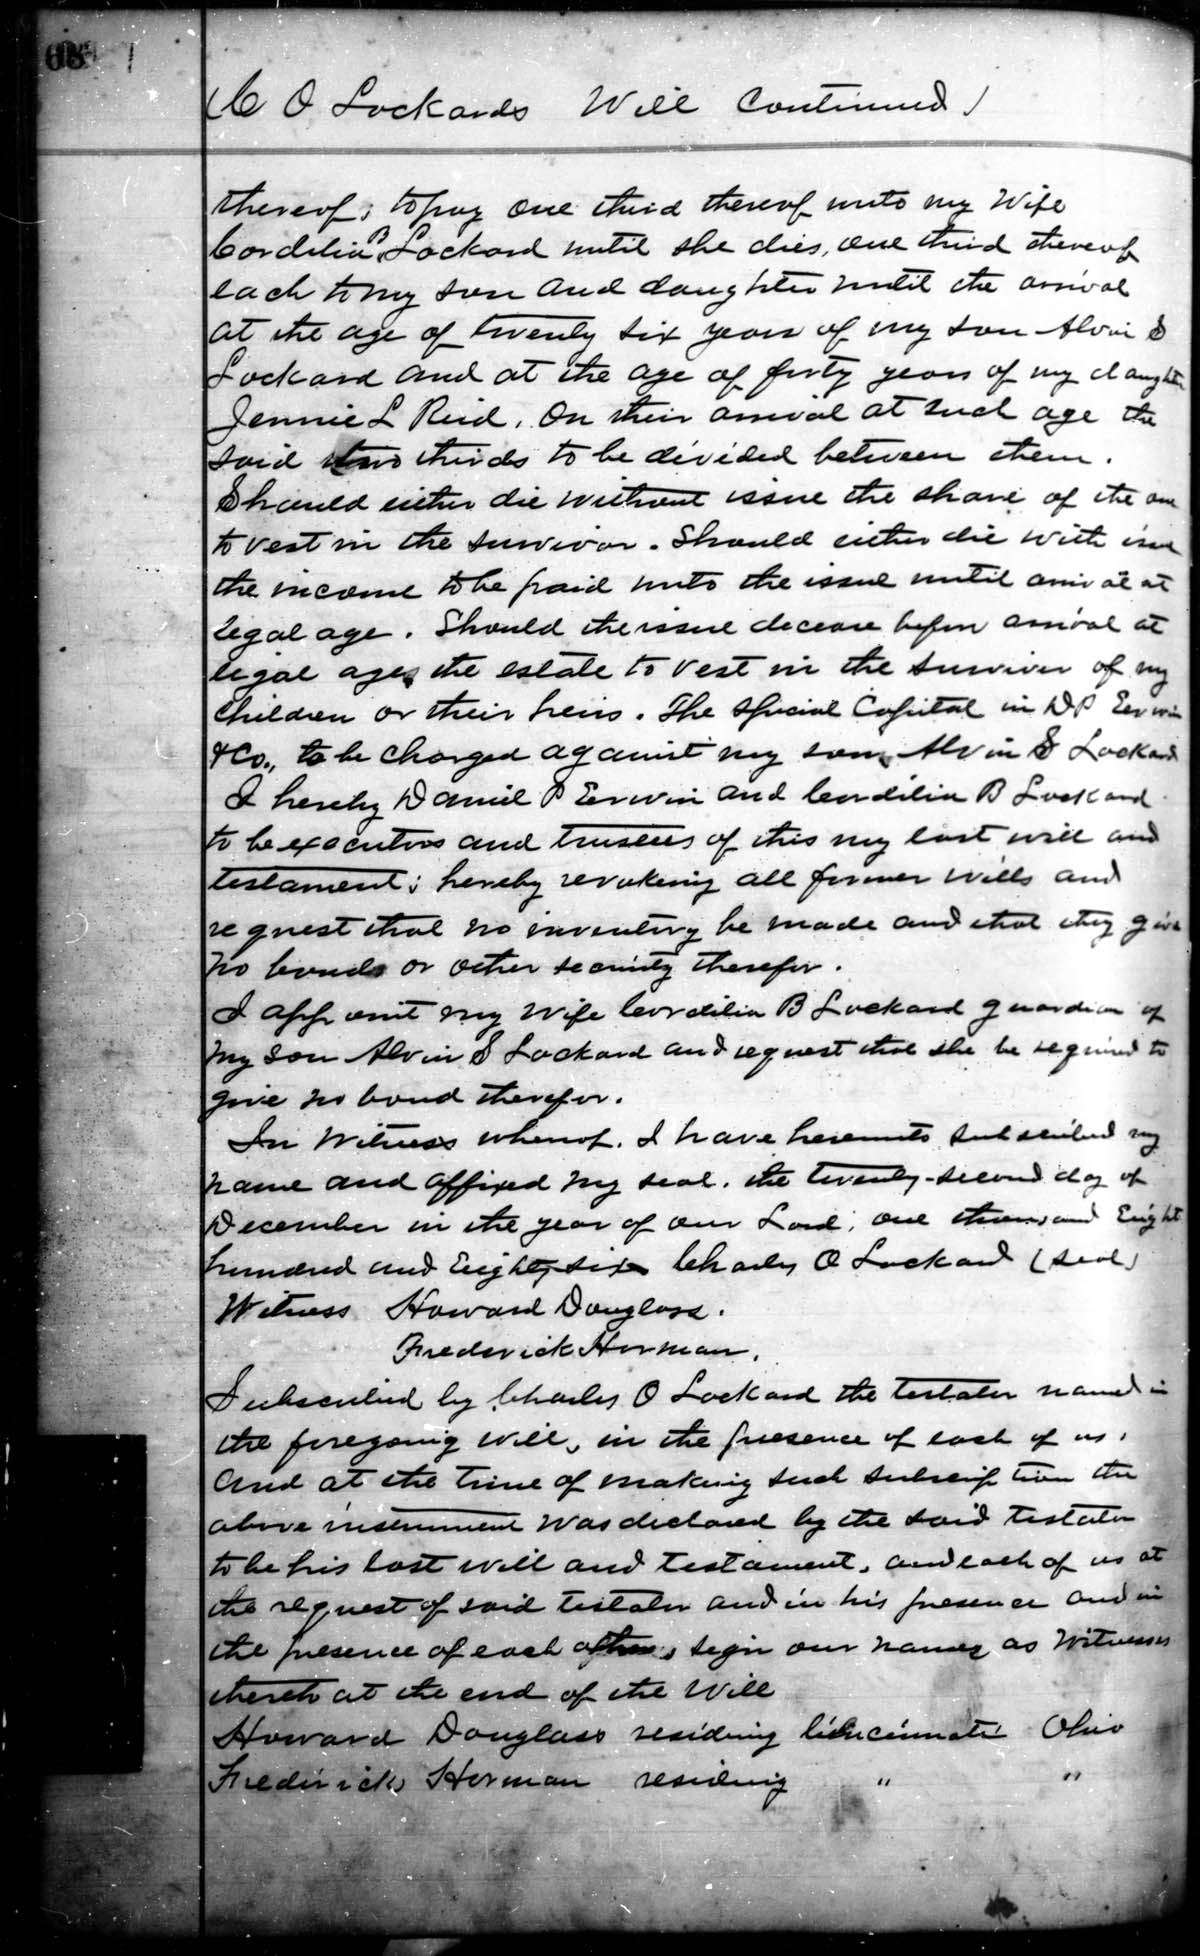 68
(C O Lockards Will Continued)
thereof; to pay one third thereof unto my Wife
Cordelia B Lockard until she dies, one third thereof
each to my son and daughter until the arrival
at the age of twenty six years of my son Alvin S
Lockard and at the age of forty years of my daughter
Jennie L Reid. On their arrival at such age the
said two thirds to be divided between them.
Should either die without issue the share of the one
to vest in the survivor. Should either die with issue
the income to be paid unto the issue until arrival at
legal age. Should the issue decease before arrival at
legal age, the estate to vest in the survivor of my
children or their heirs. The special Capital in D P Erwin
& Co., to be charged against my son, Alvin S Lockard
I hereby Daniel P Erwin and Cordelia B Lockard
to be executors and trustees of this my last will and
testament; hereby revoking all former wills and
request that no inventory be made and that they give
no bonds or other security therefor.
I appoint my wife Cordelia B Lockard guardian of
my son Alvin S Lockard and request that she be required to
give no bond therefor.
In Witness whereof, I have hereunto subscribed my
name and affixed my seal, the twenty-second day of
December in the year of our Lord, one thousand Eight
hundred and Eighty six Charles O Lockard (seal)
Witness Howard Douglass.
Frederick Horman.
Subscribed by Charles O Lockard the testator named in
the foregoing will, in the presence of each of us,
and at the time of making such subscription the
above instrument was declared by the said testator
to be his last will and testament, and each of us at
the request of said testator and in his presence and in
the presence of each other, sign our names as witnesses
thereto at the end of the Will
Howard Douglass residing Cincinnati Ohio
Frederick Horman residing " "